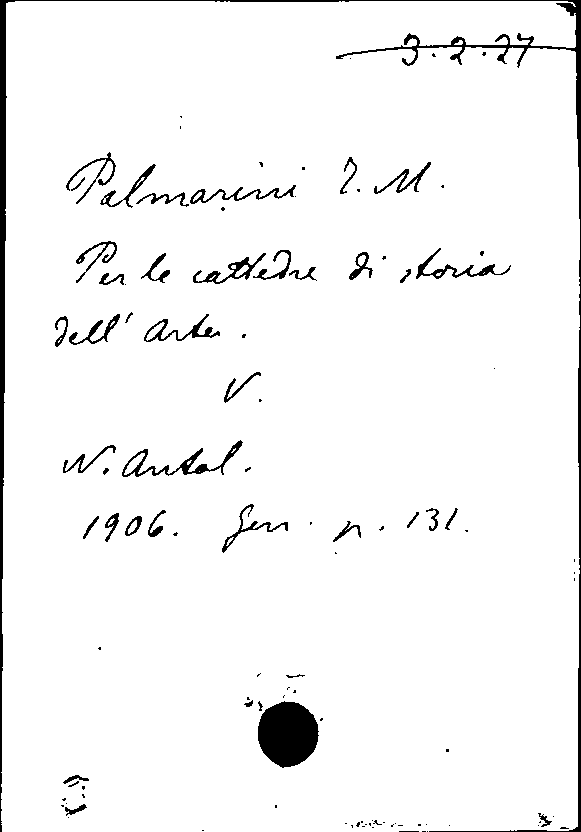 3.2.27
Palmarini I. M.
Per le cattedre di storia
dell' Arte.
V.
N. Antol.
1906. Gen. p. 131.